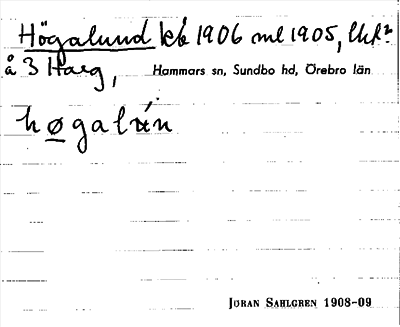 Högalund kb 1906 ml 1905, lhr
å 3 Harg, Hammars sn, Sundbo hd, Örebro län
høgalun
JÖRAN SAHLGREN 1908-09